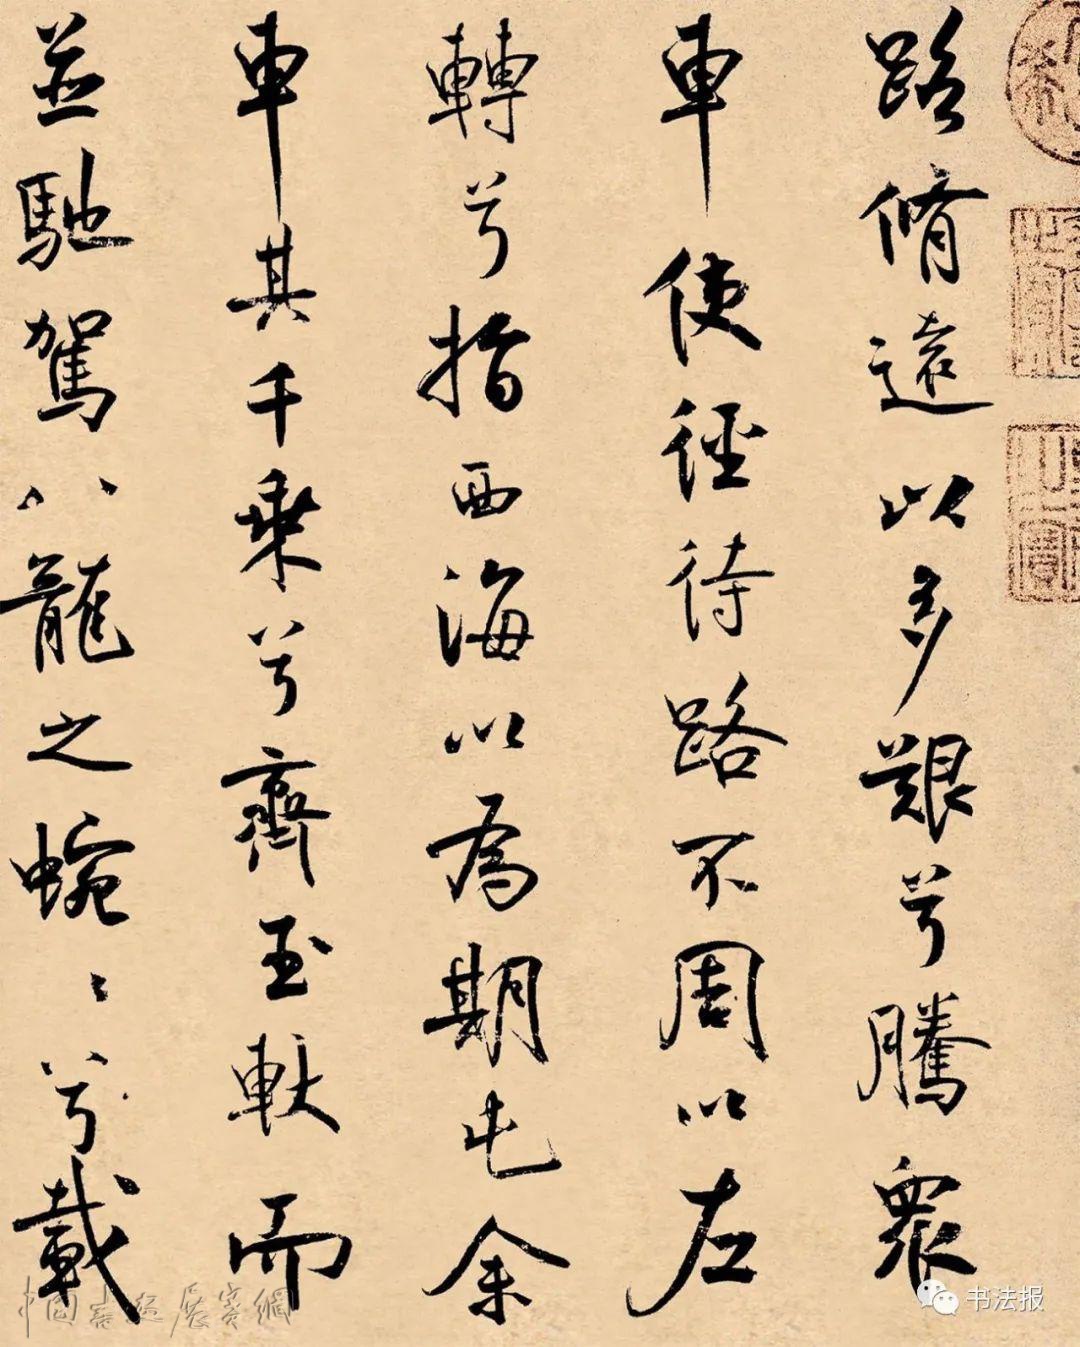 路脩遠以多艱兮騰衆
車使徑待路不周以左
轉兮指西海以為期屯余
車其千乘兮齊玉軑而
並馳駕八龍之蜿〻兮載
书法报